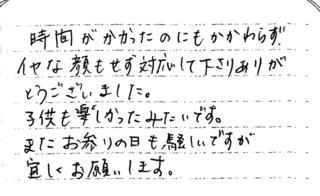 時間がかかったのにもかかわらず
イヤな顔もせず対応して下さりありが
とうございました。
子供も楽しかったみたいです。
またお参りの日も騒しいですが
宜しくお願いします。